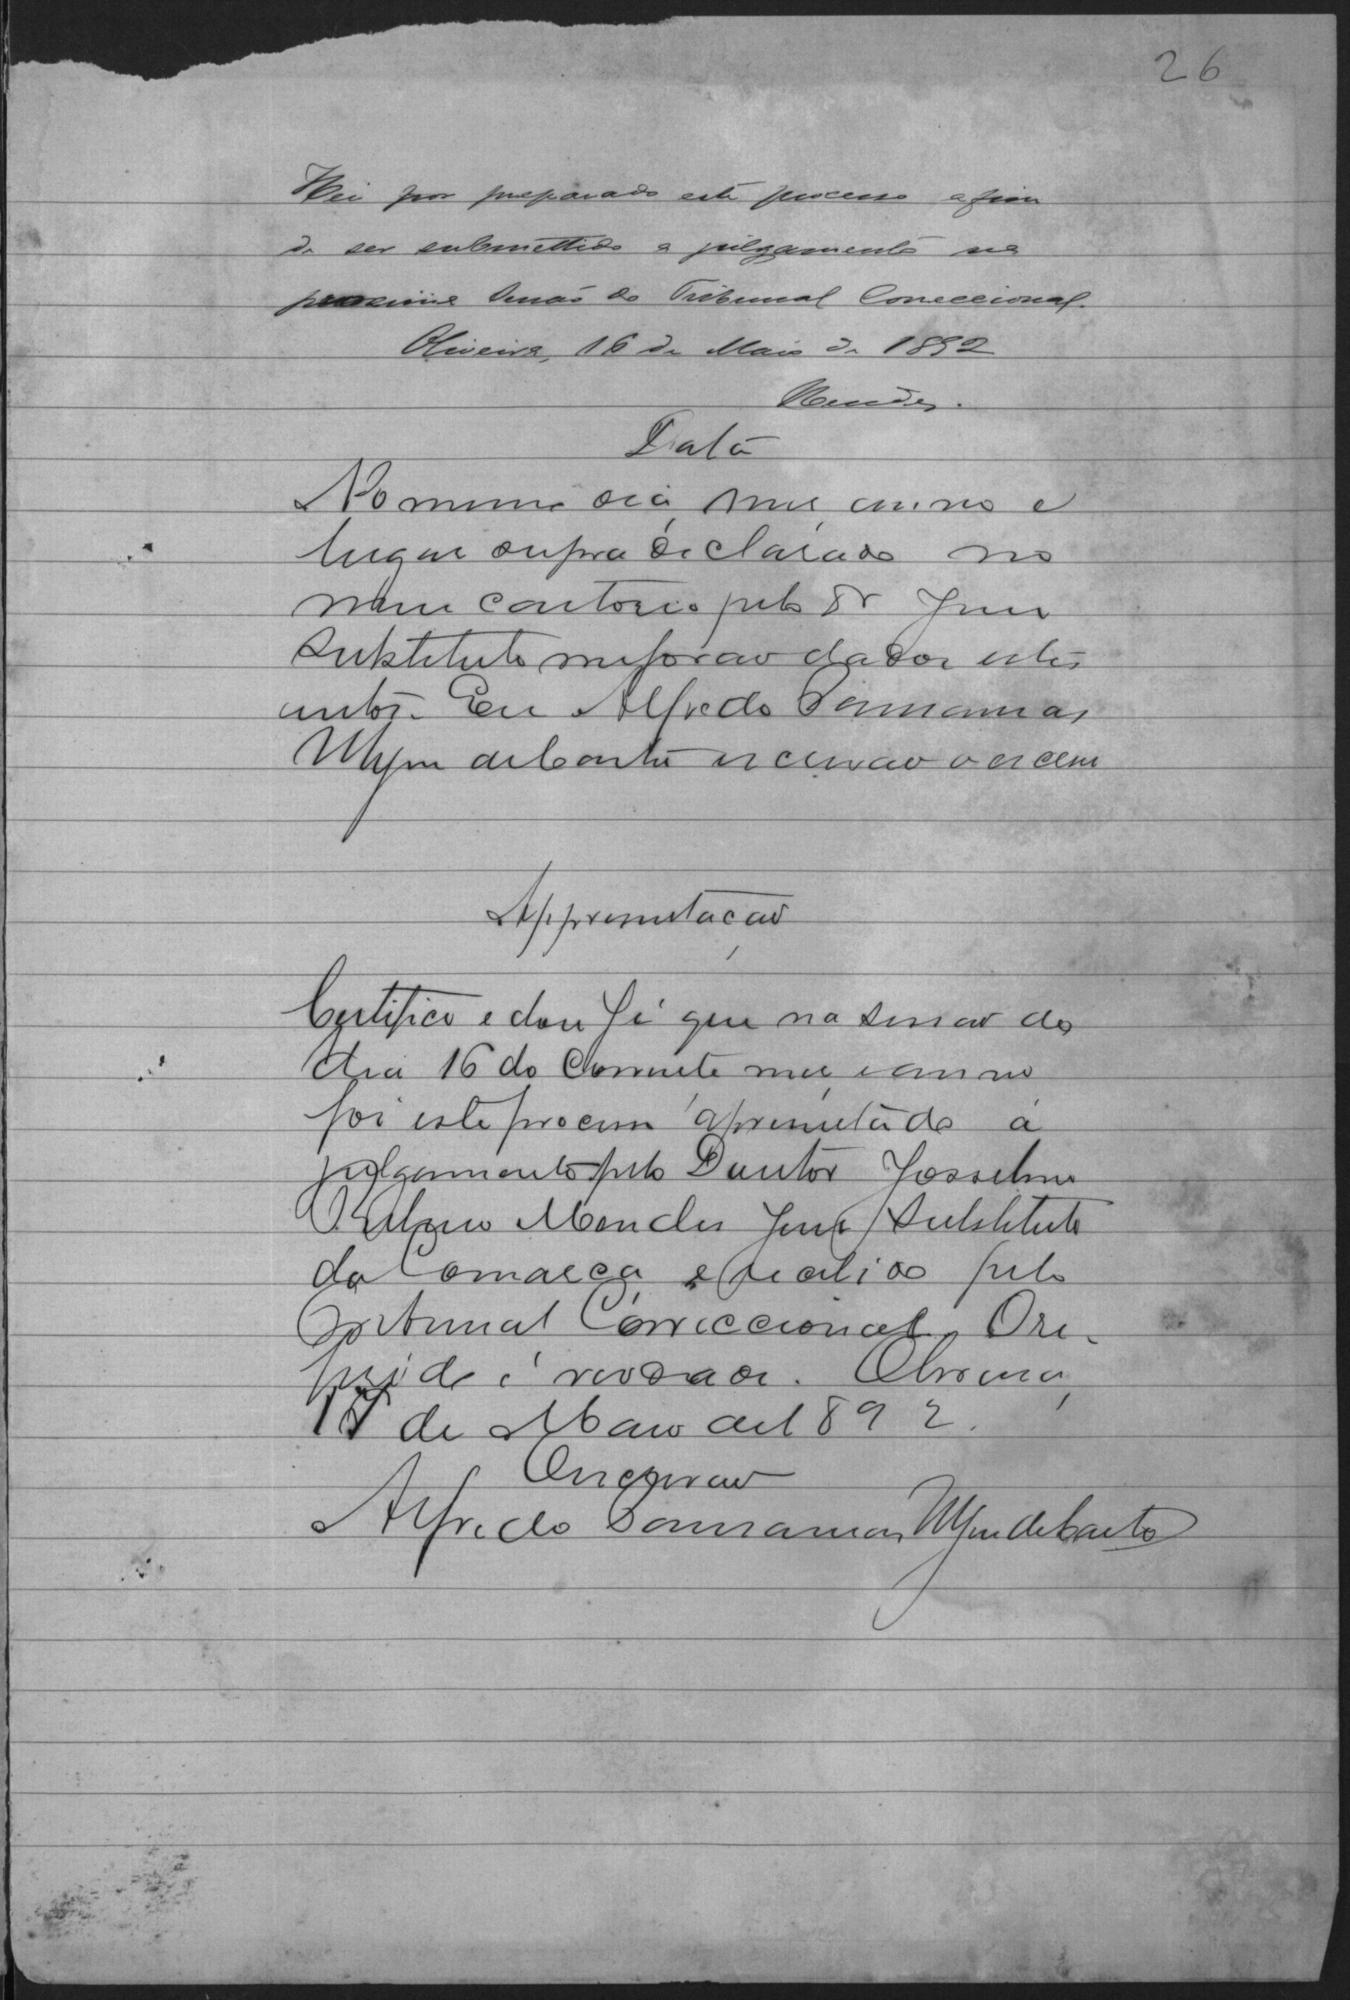 26
Hei por preparado este processo afim
de ser submettido a julgamento na
proxima sessão do Tribunal Correccional.
Oliveira, 16 de Maio de 1892
Mendes.
Data
No mesmo dia mez anno e
lugar supra declarado no
meu cartorio pelo Dr Juiz
Substituto me forão dados estes
autos. Eu Alfredo
escrivão o escrevi
Appresentação
Certifico e dou fé que na sessão do
dia 16 do Corrente mez e anno
foi este processo apresentado a
julgamento pelo Doutor Josselino
Mendes Juiz Substituto
da Comarca e recebido pelo
Tribunal Correccional. O re-
ferido é verdade. Oliveira,
17 de Maio de 1892.
O escrivão
Alfredo